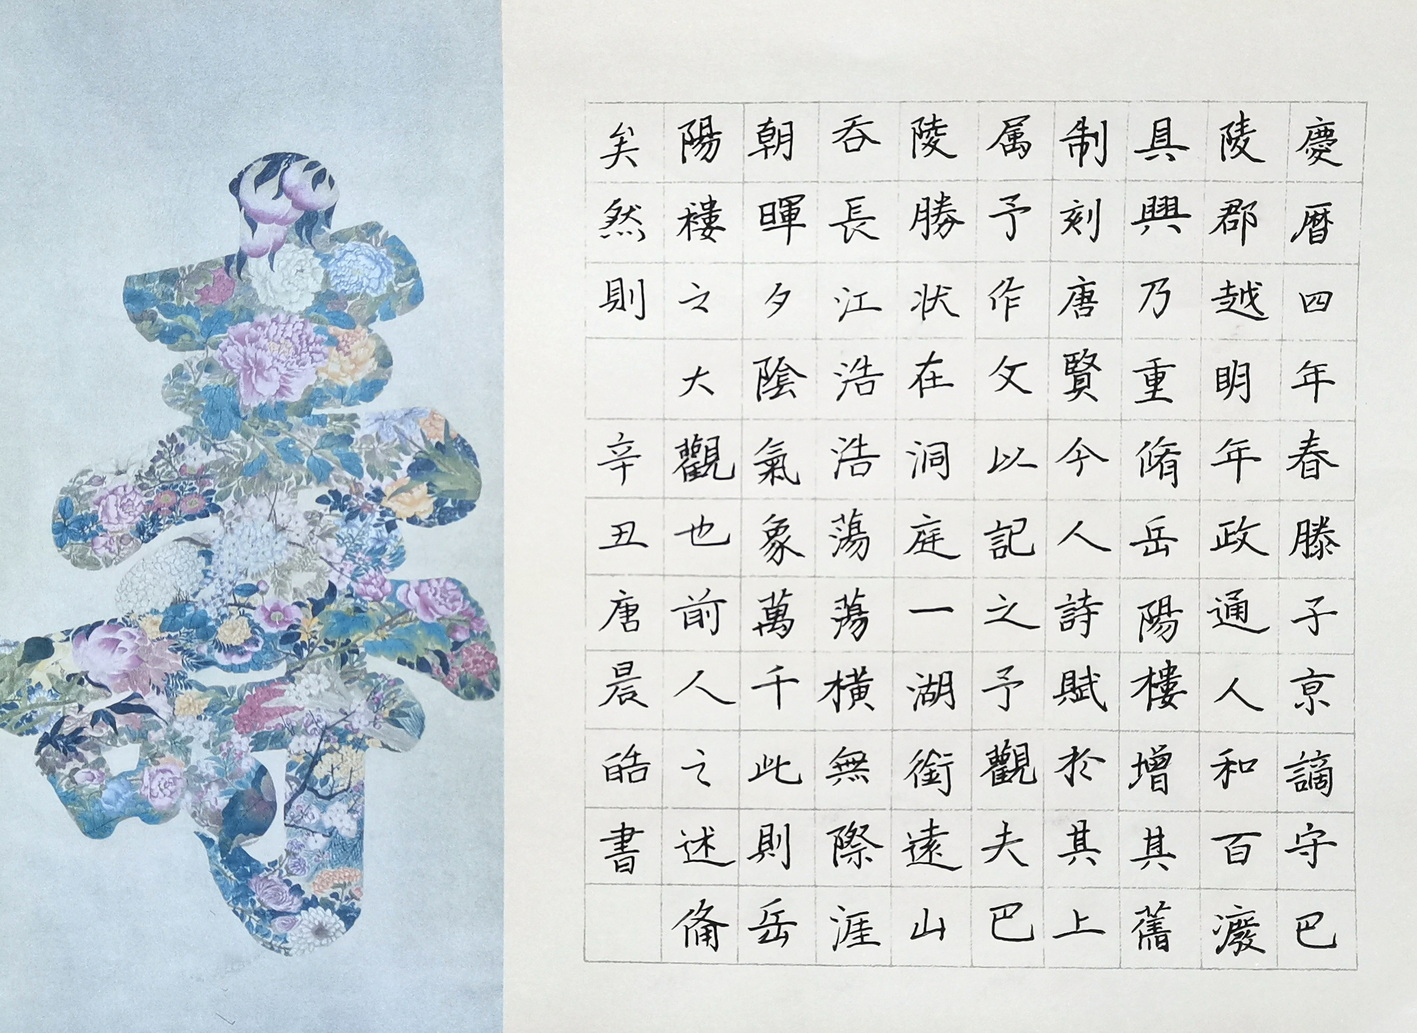 慶暦四年春滕子亰謫守巴
陵郡越明年政通人和百廢
具興乃重脩岳陽樓增其舊
制刻唐賢今人詩賦於其上
属予作文以記之予觀夫巴
陵勝状在洞庭一湖銜遠山
吞長江浩浩蕩蕩橫無際涯
朝暉夕陰氣象萬千此則岳
陽樓之大觀也前人之述備
矣然則 辛丑唐晨皓書
壽